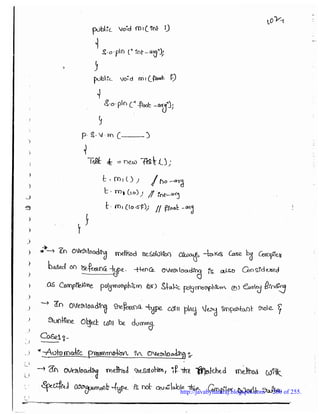 public void m1(int i)
{
S.o.pln("int-arg");
}
public void m1(float f)
{
S.o.pln("float-arg");
}
p s v m (———)
{
Test t = new Test();
t.m1(); // no-arg
t.m1(10); // int-arg
t.m1(10.5f); // float-arg
}
}
*→ In overloading method resolution always takes care by Compiler
based on reference-type. Hence overloading is also Considered
as Compiletime polymorphism (or) Static polymorphism (or) Early Binding
→ In overloading reference-type will play very important role &
Runtime Object will be dummy.
Case1:-
*Automatic promotion in Overloading:-
→ In overloading method resolution, if the matched method with
specified argument-type is not available then Compiler
http://javabynataraj.blogspot.com of 255.